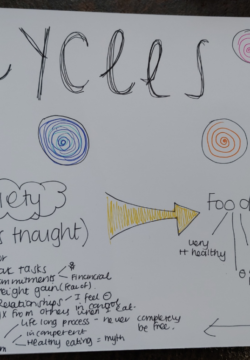 YCLES
iety
s thought)
Foo
very
++ healthy
tasks
mmitments - Financial
eight gain (fear of)
Relationships - I feel
from others in
eat.
Life long process - never completely
be free.
incompetent
Healthy eating = myth